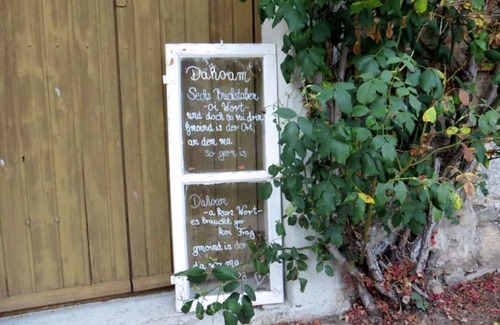 Dahoam
Sechs Buchstaben
-oi Wort-
und doch so
Gmoind is der Ort,
an dem ma
so gern is
Dahoam
-a kurz Wort-
es braucht gar
koi Frag
gmoind is der